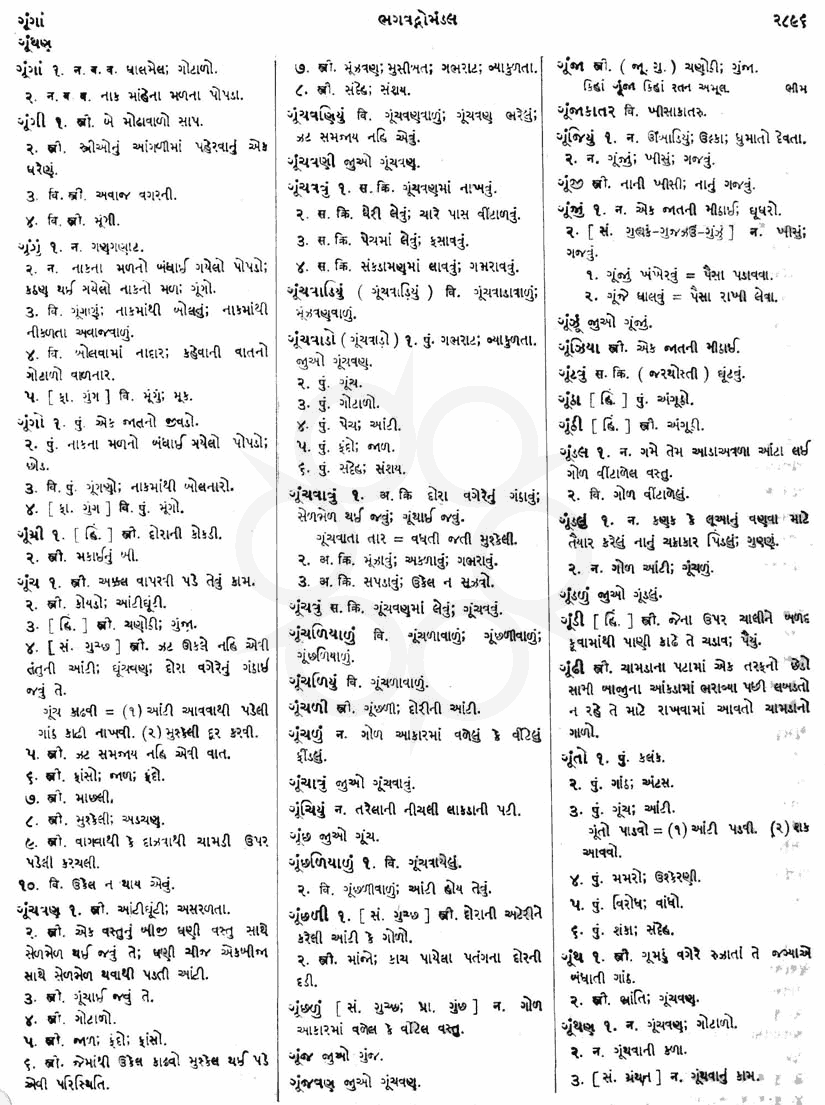 ગૂંગાં
ગૂંથણ
ભગવદ્ગોમંડલ
૨૮૯૬
ગૂંગાં ૧. ન. બ. વ. ધાલમેલ; ગોટાળો.
૨. ન. બ. વ. નાક માંહેના મળના પોપડા.
ગૂંગી ૧. સ્ત્રી. બે મોઢાવાળો સાપ.
૨. સ્ત્રી. સ્ત્રીઓનું આંગળીમાં પહેરવાનું એક
ઘરેણું.
૩. વિ. સ્ત્રી. અવાજ વગરની.
૪. વિ. સ્ત્રી. મૂંગી.
ગૂંગું ૧. ન. ગણગણાટ.
૨. ન. નાકના મળનો બંધાઈ ગયેલો પોપડો;
કઠણ થઈ ગયેલો નાકનો મળ; ગૂંગો.
૩. વિ. ગૂંગણું; નાકમાંથી બોલતું; નાકમાંથી
નીકળતા અવાજવાળું.
૪. વિ. બોલવામાં નાદાર; કહેવાની વાતનો
ગોટાળો વાળનાર.
૫. [ ફા. ગુંગ ] વિ. મૂંગું; મૂક.
ગૂંગો ૧. પું. એક જાતનો જીવડો.
૨. પું. નાકના મળનો બંધાઈ ગયેલો પોપડો;
છોડ.
૩. વિ. પું. ગૂંગણો; નાકમાંથી બોલનારો.
૪. [ ફા. ગુંગ ] વિ. પું. મૂંગો.
ગૂંગ્રી ૧. [ હિં. ] સ્ત્રી. દોરાની કોકડી.
૨. સ્ત્રી. મકાઈનું બી.
ગૂંચ ૧. સ્ત્રી. અક્કલ વાપરવી પડે તેવું કામ.
૨. સ્ત્રી. કોયડો; આંટીઘૂંટી.
૩. [ હિં. ] સ્ત્રી. ચણોઠી; ગુંજા.
૪. [ સં. ગુચ્છ ] સ્ત્રી. ઝટ ઊકલે નહિ એવી
તંતુની આંટી; ઘૂંચવણ; દોરા વગેરેનું ગંઠાઈ
જવું તે.
ગૂંચ કાઢવી = (૧) આંટી આવવાથી પડેલી
ગાંઠ કાઢી નાખવી. (૨) મુશ્કેલી દૂર કરવી.
૫. સ્ત્રી. ઝટ સમજાય નહિ એવી વાત.
૬. સ્ત્રી. ફાંસો; જાળ; ફંદો.
૭. સ્ત્રી. માછલી.
૮. સ્ત્રી. મુશ્કેલી; અડચણ.
૯. સ્ત્રી. વાગવાથી કે દાઝવાથી ચામડી ઉપર
પડેલી કરચલી.
૧૦. વિ. ઉકેલ ન થાય એવું.
ગૂંચવણ ૧. સ્ત્રી. આંટીઘૂંટી; અસરળતા.
૨. સ્ત્રી. એક વસ્તુનું બીજી ઘણી વસ્તુ સાથે
સેળભેળ થઈ જવું તે; ઘણી ચીજ એકબીજા
સાથે સેળભેળ થવાથી પડતી આંટી.
૩. સ્ત્રી. ગૂંચાઈ જવું તે.
૪. સ્ત્રી. ગોટાળો.
૫. સ્ત્રી. જાળ; ફંદો; ફાંસો.
૬. સ્ત્રી. જેમાંથી ઉકેલ કાઢવો મુશ્કેલ થઈ પડે
એવી પરિસ્થિતિ.
૭. સ્ત્રી. મૂંઝવણ; મુસીબત; ગભરાટ; વ્યાકુળતા.
૮. સ્ત્રી. સંદેહ; સંશય.
ગૂંચવણિયું વિ. ગૂંચવણવાળું; ગૂંચવણ ભરેલું;
ઝટ સમજાય નહિ એવું.
ગૂંચવણી જુઓ ગૂંચવણ.
ગૂંચવવું ૧. સ. ક્રિ. ગૂંચવણમાં નાખવું.
૨. સ. ક્રિ. ઘેરી લેવું; ચારે પાસ વીંટાળવું.
૩. સ. ક્રિ. પેચમાં લેવું; ફસાવવું.
૪. સ. ક્રિ. સંકડામણમાં લાવવું; ગભરાવવું.
ગૂંચવાડિયું ( ગૂંચવાડિયું ) વિ. ગૂંચવાડાવાળું;
મૂંઝવણવાળું.
ગૂંચવાડો ( ગૂંચવાડો ) ૧. પું. ગભરાટ; વ્યાકુળતા.
જુઓ ગૂંચવણ.
૨. પું. ગૂંચ.
૩. પું. ગોટાળો.
૪. પું. પેચ; આંટી.
૫. પું. ફંદો; જાળ.
૬. પું. સંદેહ; સંશય.
ગૂંચવાવું ૧. અ. ક્રિ દોરા વગેરેનું ગંઠાવું;
સેળભેળ થઈ જવું; ગૂંચાઈ જવું.
ગૂંચવાતા તાર = વધતી જતી મુશ્કેલી.
૨. અ. ક્રિ. મૂંઝાવું; અકળાવું; ગભરાવું.
૩. અ. ક્રિ. સપડાવું; ઉકેલ ન સૂઝવો.
ગૂંચવું સ. ક્રિ. ગૂંચવણમાં લેવું; ગૂંચવવું.
ગૂંચળિયાળું વિ. ગૂંચળાવાળું; ગૂંછળીવાળું;
ગૂંછળિયાળું.
ગૂંચળિયું વિ. ગૂંચળાવાળું.
ગૂંચળી સ્ત્રી. ગૂંછળી; દોરીની આંટી.
ગૂંચળું ન. ગોળ આકારમાં વળેલું કે વીંટેલું
ફીંડલું.
ગૂંચાવું જુઓ ગૂંચવાવું.
ગૂંચિયું ન. તરેલાની નીચલી લાકડાની પટી.
ગૂંછ જુઓ ગૂંચ.
ગૂંછળિયાળું ૧. વિ. ગૂંચવાયેલું.
૨. વિ. ગૂંછળીવાળું; આંટી હોય તેવું.
ગૂંછળી ૧. [ સં. ગુચ્છ ] સ્ત્રી. દોરાની અટેરીને
કરેલી આંટી કે ગોળો.
૨. સ્ત્રી. માંજો; કાચ પાયેલા પતંગના દોરની
દડી.
ગૂંછળું [ સં. ગુચ્છ; પ્રા. ગુંછ ] ન. ગોળ
આકારમાં વળેલ કે વીંટેલ વસ્તુ.
ગૂંજ જુઓ ગુંજ.
ગૂંજવણ જુઓ ગૂંચવણ.
ગૂંજા સ્ત્રી. ( જૂ. ગુ. ) ચણોઠી; ગુંજા.
કિહાં ગૂંજા કિહાં રતન અમૂલ. ભીમ
ગૂંજાકાતર વિ. ખીસાકાતરુ.
ગૂંજિયું ૧. ન. ઊંબાડિયું; ઉલ્કા; ધુમાતો દેવતા.
૨. ન. ગૂંજું; ખીસું; ગજવું.
ગૂંજી સ્ત્રી. નાની ખીસી; નાનું ગજવું.
ગૂંજું ૧. ન. એક જાતની મીઠાઈ; ઘૂઘરો.
૨. [ સં. ગુહ્યક-ગુજ્ઝઉ-ગુંઝું ] ન. ખીસું;
ગજવું.
૧. ગૂંજું ખંખેરવું = પૈસા પડાવવા.
૨. ગૂંજે ઘાલવું = પૈસા રાખી લેવા.
ગૂંઝું જુઓ ગૂંજું.
ગૂંઝિયા સ્ત્રી. એક જાતની મીઠાઈ.
ગૂંટવું સ. ક્રિ. ( જરથોસ્તી ) ઘૂંટવું.
ગૂંઠા [ હિં. ] પું. અંગૂઠો.
ગૂંઠી [ હિં. ] સ્ત્રી. અંગૂઠી.
ગૂંડલ ૧. ન. ગમે તેમ આડાઅવળા આંટા લઈ
ગોળ વીંટાળેલ વસ્તુ.
૨. વિ. ગોળ વીંટાળેલું.
ગૂંડલું ૧. ન. કણક કે લૂઆનું વણવા માટે
તૈયાર કરેલું નાનું ચક્રાકાર પિંડલું; ગુણણું.
૨. ન. ગોળ આંટી; ગૂંચળું.
ગૂંડળું જુઓ ગૂંડલું.
ગૂંડી [ હિં. ] સ્ત્રી. જેના ઉપર ચાલીને બળદ
કૂવામાંથી પાણી કાઢે તે ચડાવ; પૈયું.
ગૂંઢી સ્ત્રી. ચામડાના પટામાં એક તરફનો છેડો
સામી બાજુના આંકડામાં ભરાવ્યા પછી લબડતો
ન રહે તે માટે રાખવામાં આવતો ચામડાનો
ગાળો.
ગૂંતો ૧. પું. કલંક.
૨. પું. ગાંઠ; અંટસ.
૩. પું. ગૂંચ; આંટી.
ગૂંતો પાડવો = (૧) આંટી પડવી. (૨) શક
આવવો.
૪. પું. મમરો; ઉશ્કેરણી.
૫. પું. વિરોધ; વાંધો.
૬. પું. શંકા; સંદેહ.
ગૂંથ ૧. સ્ત્રી. ગૂમડું વગેરે રુઝાતાં તે જગ્યાએ
બંધાતી ગાંઠ.
૨. સ્ત્રી. ભ્રાંતિ; ગૂંચવણ.
ગૂંથણ ૧. ન. ગૂંચવણ; ગોટાળો.
૨. ન. ગૂંથવાની કળા.
૩. [ સં. ગ્રંથન ] ન. ગૂંથવાનું કામ.